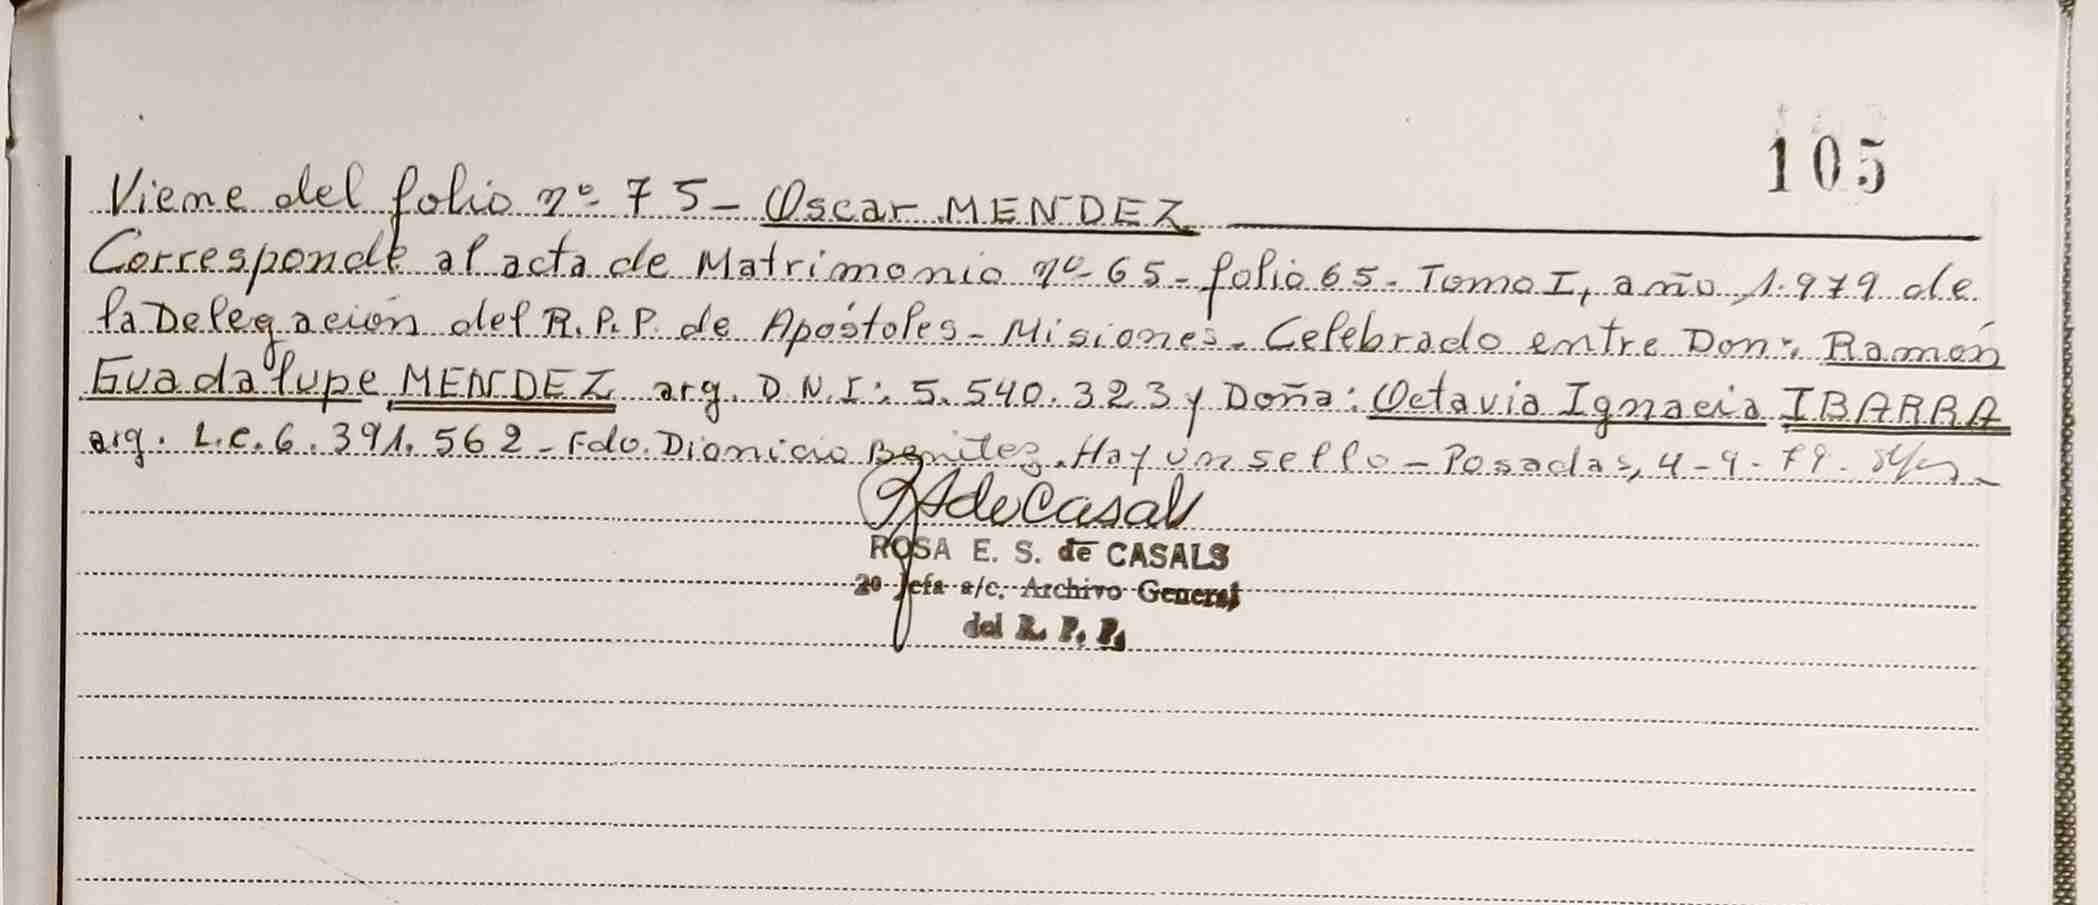 105
Viene del folio nº 75 - Oscar MENDEZ
Corresponde al acta de Matrimonio nº 65 - folio 65 - Tomo I, año 1.979 de
la Delegación del R.P.P. de Apóstoles - Misiones. Celebrado entre Don: Ramón
Guadalupe MENDEZ arg. D.N.I: 5.540.323 y Doña: Octavia Ignacia IBARRA
arg. L.C. 6.391.562 - Fdo. Dionicio Benitez. Hay un sello - Posadas, 4-9-79.
de Casals
ROSA E. S. de CASALS
2º Jefa a/c. Archivo General
del R. P. P.